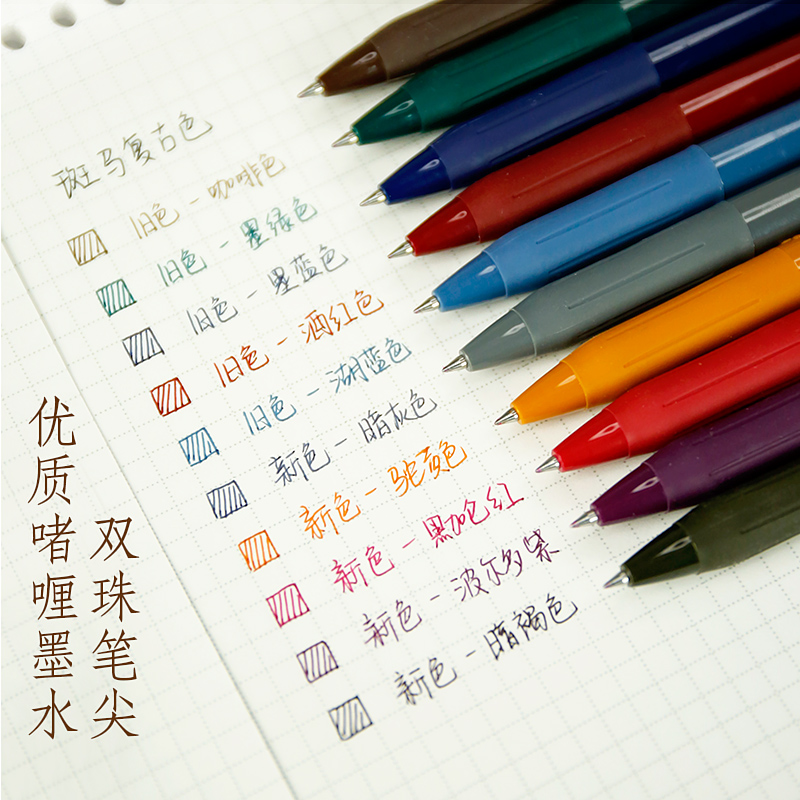 斑马复古色
旧色-咖啡色
旧色-墨绿色
旧色-墨蓝色
旧色-酒红色
旧色-湖蓝色
新色-暗灰色
新色-驼黄色
新色-黑加仑红
新色-波尔多紫
新色-暗褐色
双珠笔尖
优质啫喱墨水